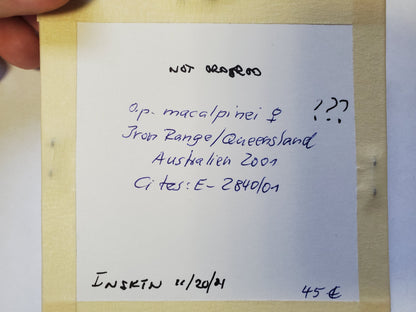 NOT ORDERED
O.p. macalpinei ♀ !??
Iron Range/Queensland
Australien 2001
Cites: E- 2840/01
INSKTN 11/20/21
45 €